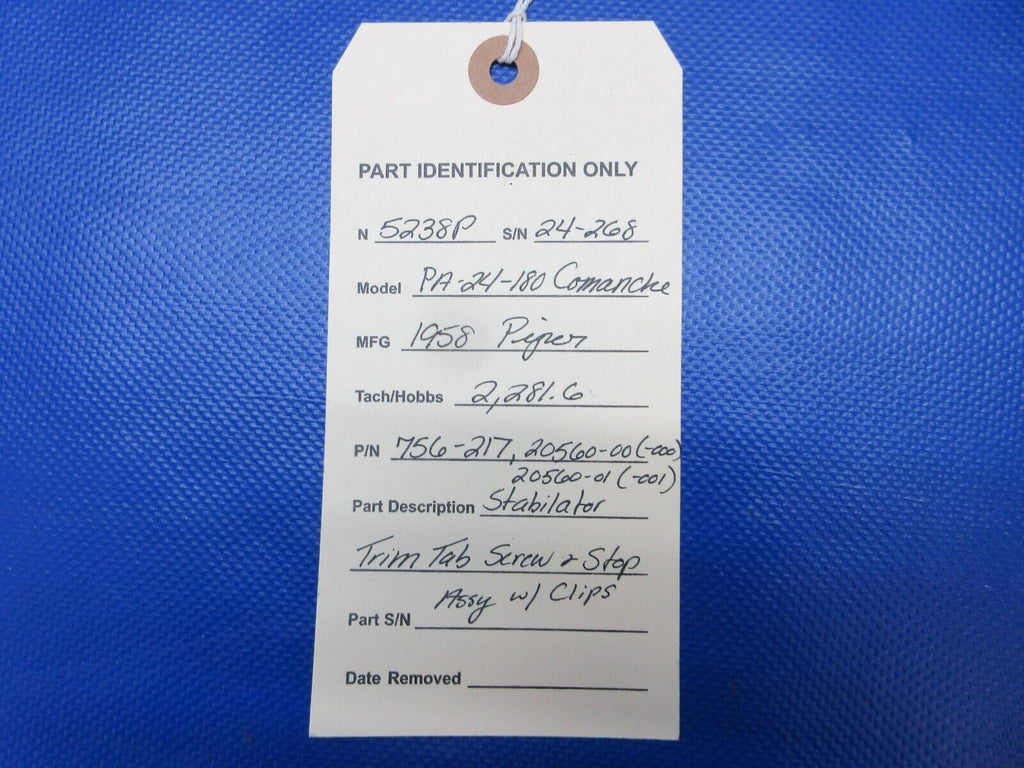 PART IDENTIFICATION ONLY
N 5238P S/N 24-268
Model PA-24-180 Comanche
MFG 1958 Piper
Tach/Hobbs 2,281.6
P/N 756-217, 20560-00 (-000)
20560-01 (-001)
Part Description Stabilator
Trim Tab Screw & Stop
Assy w/ Clips
Part S/N
Date Removed